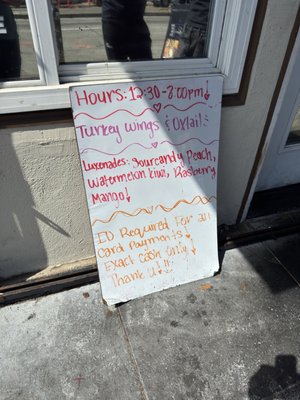 Hours: 12:30-8:00pm!
Turkey Wings & Oxtai!!
Luxonades: Sourcandy Peach,
Watermelon Kiwi, Rasberry
Mango!
ID Required For all
Card Payments
Exact cash only!
Thank U!!